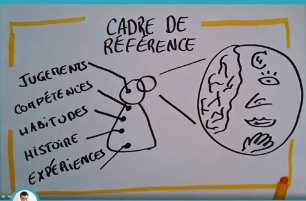 CADRE DE
RÉFÉRENCE
JUGEMENTS
COMPÉTENCES
HABITUDES
HISTOIRE
EXPÉRIENCES